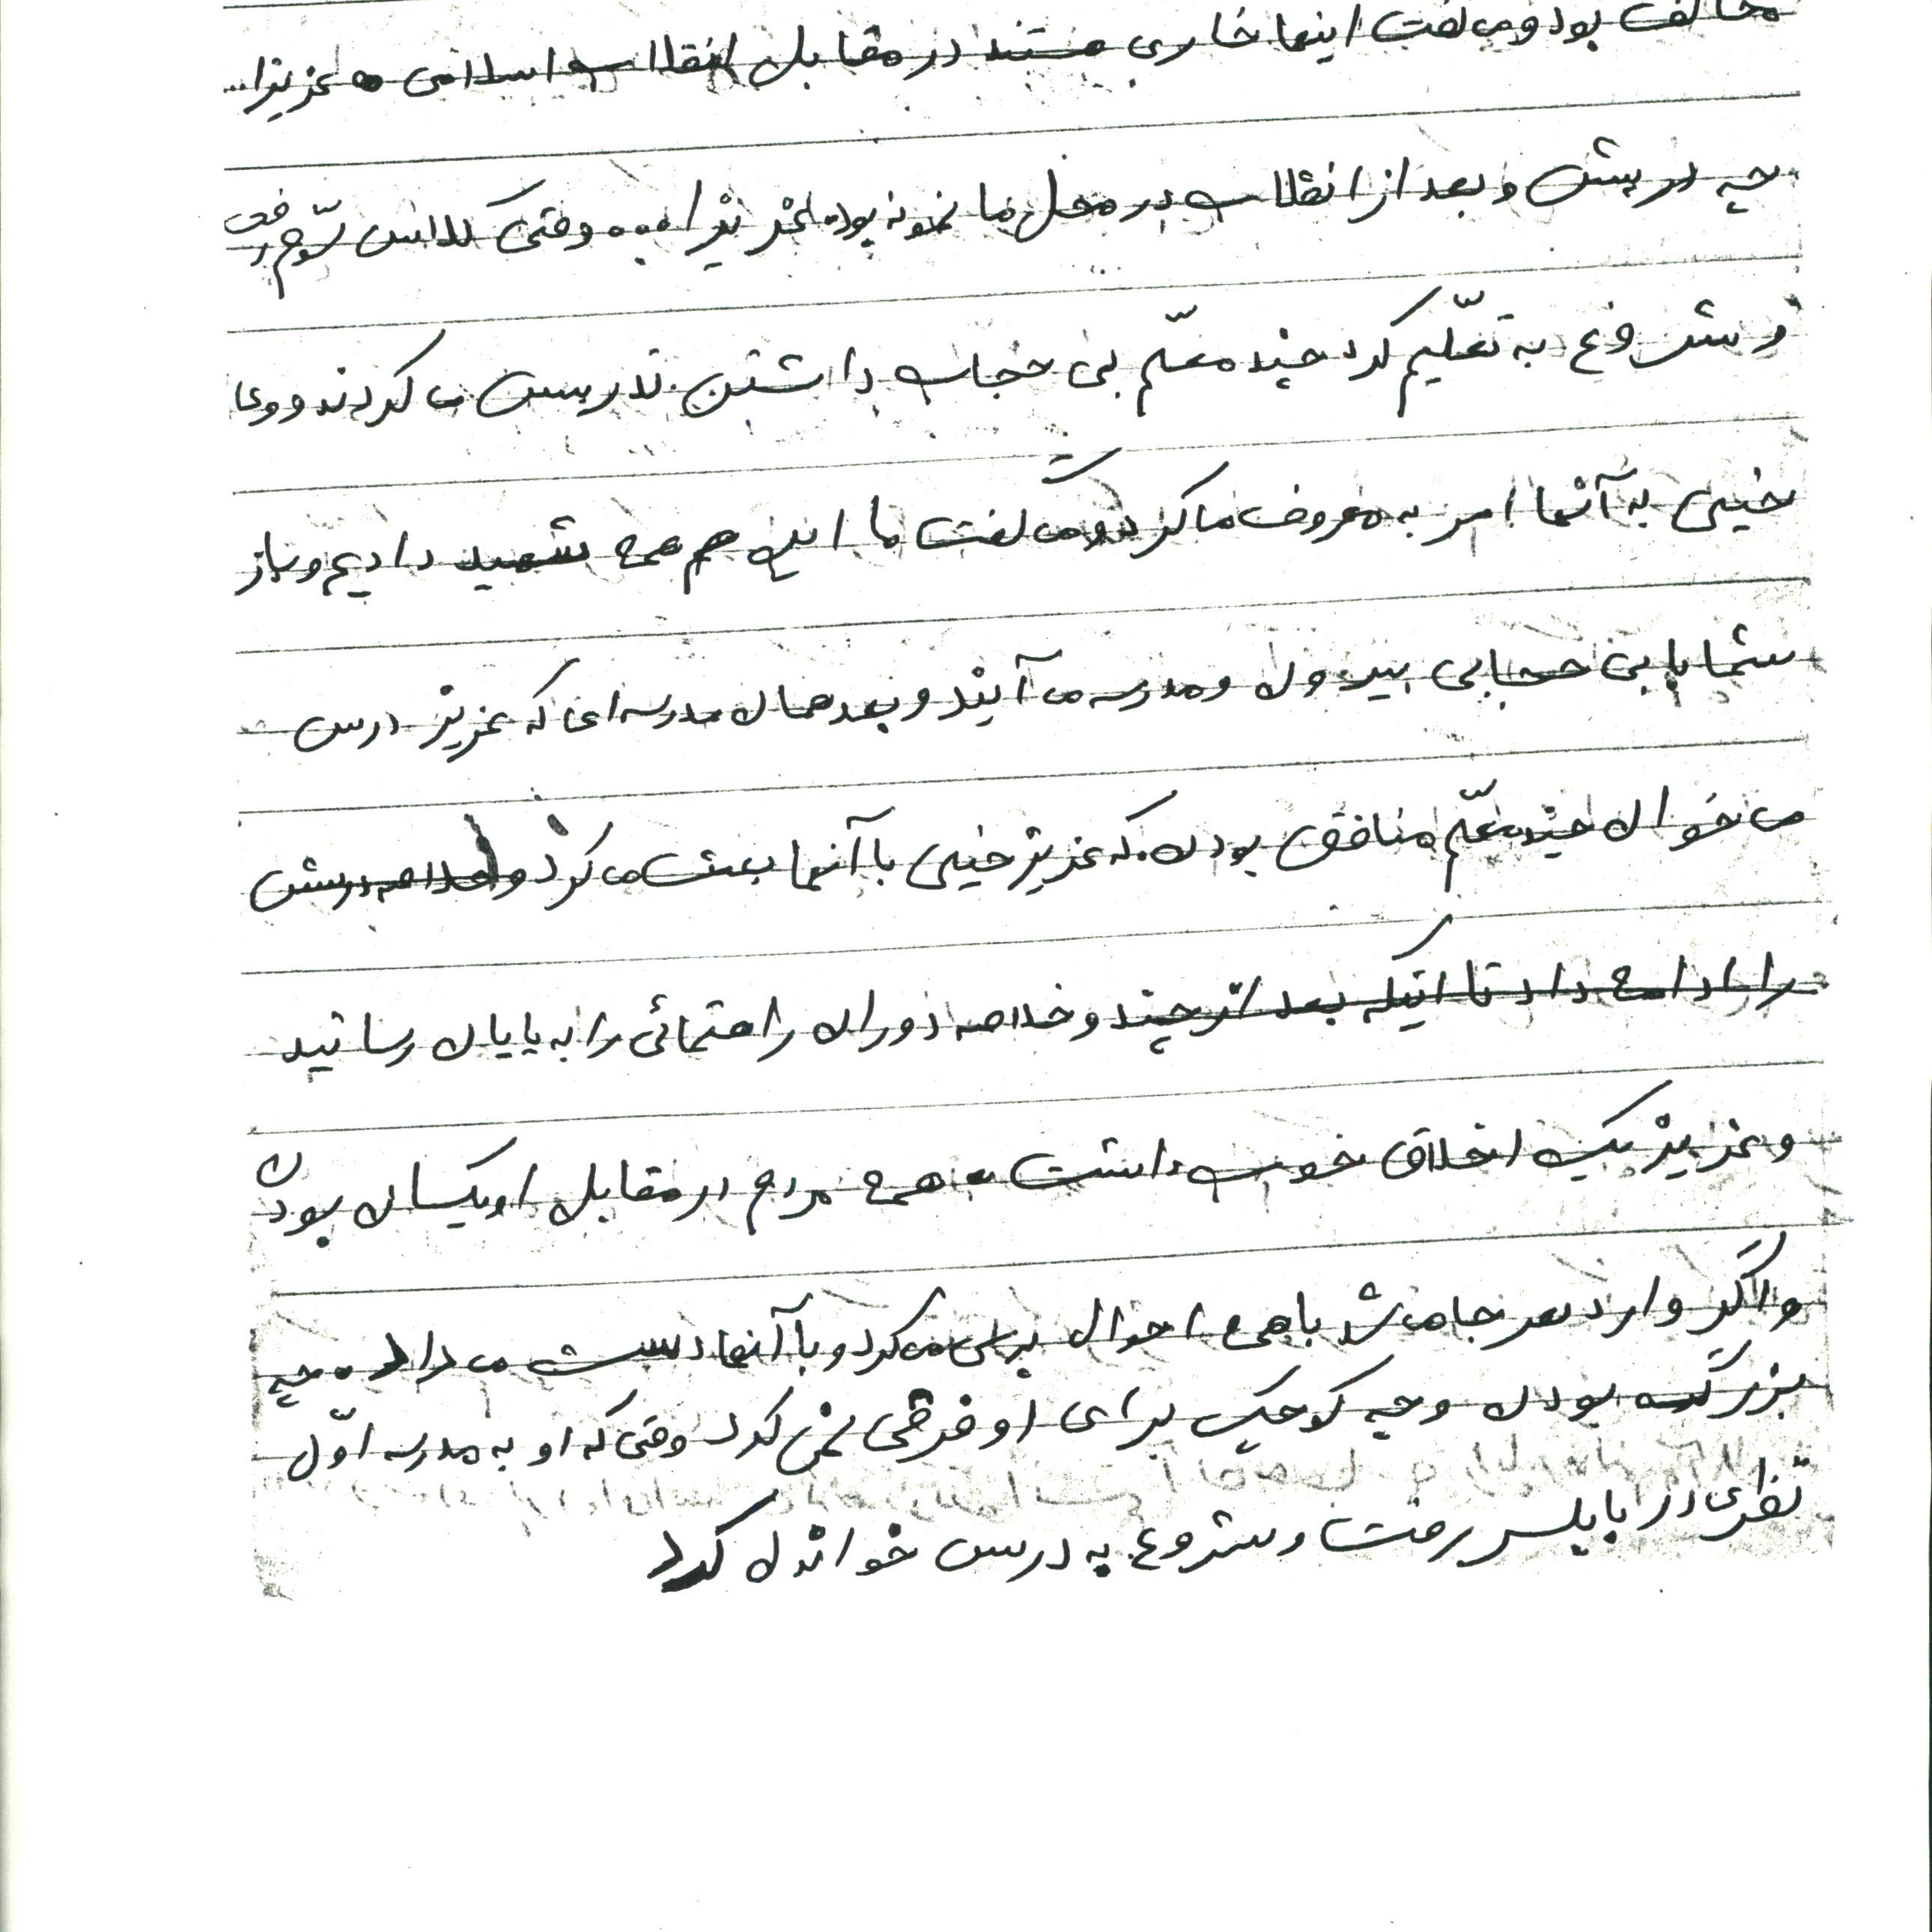 مخالف بود و می گفت اینها خاری هستند در مقابل انقلاب اسلامی ه عزیزا...
چه در پیش و بعد از انقلاب در محل ما نمونه بوده عزیزا... وقتی کلاس سّوم رفت
و شروع به تعّلیم کرد چند معّلم بی حجاب داشتن تدریس می کردند و وی
خیلی به آنها امر به معروف ما کرد و می گفت ما این هم همه شهید دادیم و باز
شما با بی حجابی بیرون و مدرسه می آیند و بعد همان مدرسه ای که عزیز درس
می خوان چند معّلم منافق بودن که عزیز خیلی با آنها بحث می کرد و خلاصه درسش
را ادامه داد تا اینکه بعد از چند و خلاصه دوران راهنمائی را به پایان رسانید
و عزیز یک اخلاق خوب داشت به همه مردم در مقابل او یکسان بودن
و اگر وارد هر جا می شد با همه احوال پرسی می کرد و با آنها دست می داد ه چه
بزرگ بودن و چه کوچک برای او فرقی نمی کرد وقتی که او به مدرسه اوّل
نّظری در بابلسر رفت و شروع به درس خواندن کرد